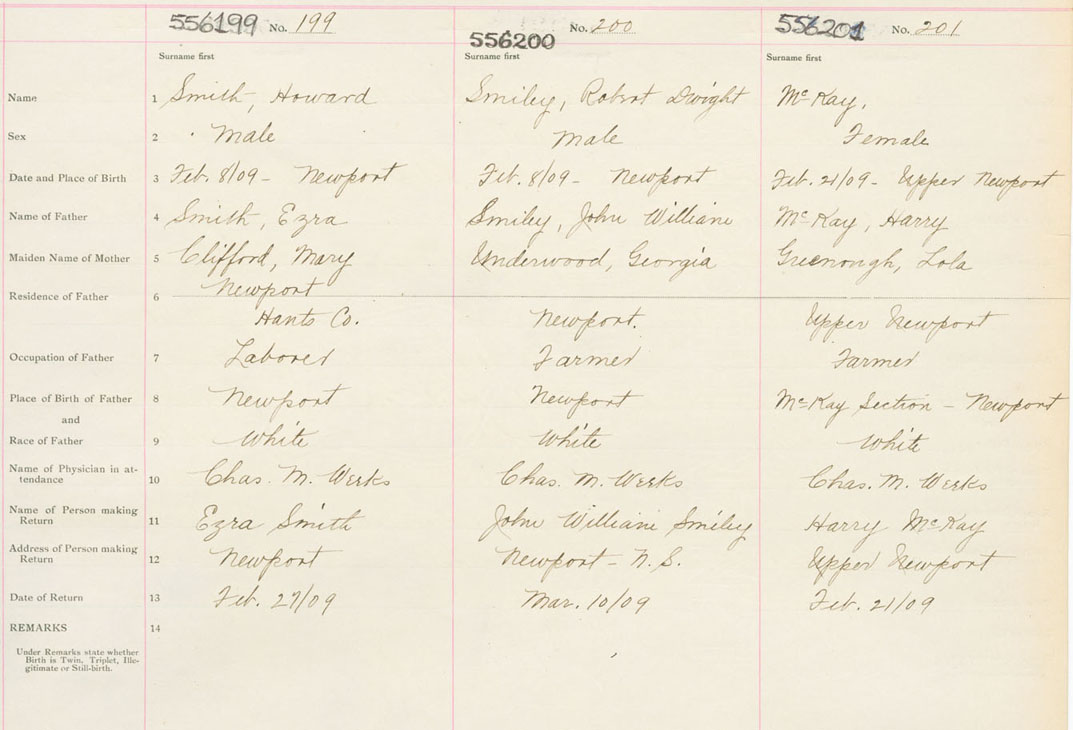 556199 No. 199 556200 No. 200 556201 No. 201
Surname first Surname first Surname first
Name 1 Smith, Howard Smiley, Robert Dwight McKay,
Sex 2 Male Male Female
Date and Place of Birth 3 Feb. 8/09 - Newport Feb. 8/09 - Newport Feb. 21/09 - Upper Newport
Name of Father 4 Smith, Ezra Smiley, John William McKay, Harry
Maiden Name of Mother 5 Clifford, Mary Underwood, Georgia Greenough, Lola
Residence of Father 6 Newport
Hants Co. Newport. Upper Newport
Occupation of Father 7 Laborer Farmer Farmer
Place of Birth of Father 8 Newport Newport McKay Section - Newport
and
Race of Father 9 White White White
Name of Physician in at-
tendance 10 Chas. M. Werks Chas. M. Werks Chas. M. Werks
Name of Person making
Return 11 Ezra Smith John William Smiley Harry McKay
Address of Person making
Return 12 Newport Newport - N.S. Upper Newport
Date of Return 13 Feb. 27/09 Mar. 10/09 Feb. 21/09
REMARKS 14
Under Remarks state whether
Birth is Twin, Triplet, Ille-
gitimate or Still-birth.